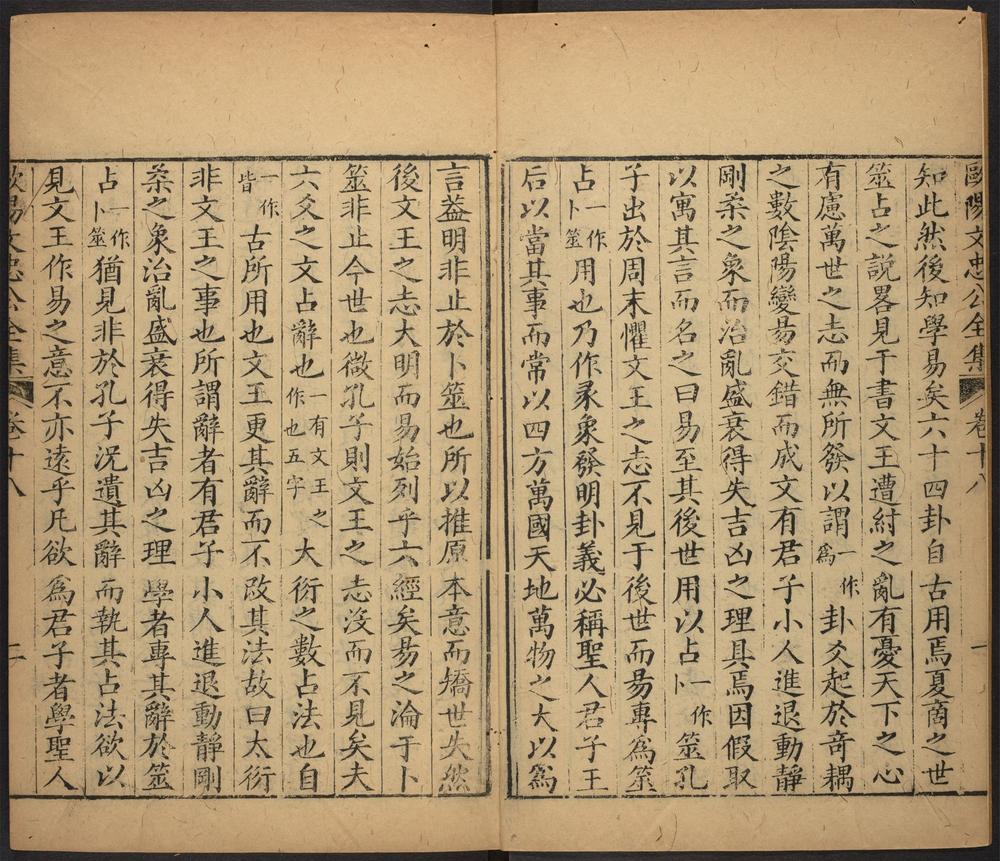 歐陽文忠公全集 卷十八 一
知此然後知學易矣六十四卦自古用焉夏商之世
筮占之說畧見于書文王遭紂之亂有憂天下之心
有慮萬世之志而無所發以謂一作為卦爻起於奇耦
之數陰陽變昜交錯而成文有君子小人進退動靜
剛柔之象而治亂盛衰得失吉凶之理具焉因假取
以寓其言而名之曰易至其後世用以占一作卜筮孔
子出於周末懼文王之志不見于後世而昜專為筮
占一作卜筮用也乃作彖象發明卦義必稱聖人君子王
后以當其事而常以四方萬國天地萬物之大以為
言葢明非止於卜筮也所以推原本意而矯世失然
後文王之志大明而昜始列乎六經矣昜之淪于卜
筮非止今世也微孔子則文王之志沒而不見矣夫
六爻之文占辭也一有文王之作也五字大衍之數占法也自
一作皆古所用也文王更其辭而不改其法故曰大衍
非文王之事也所謂辭者有君子小人進退動靜剛
柔之象治亂盛衰得失吉凶之理學者專其辭於筮
占一作卜筮猶見非於孔子況遺其辭而執其占法欲以
見文王作易之意不亦遠乎凡欲為君子者學聖人
歐陽文忠公全集 卷十八 二